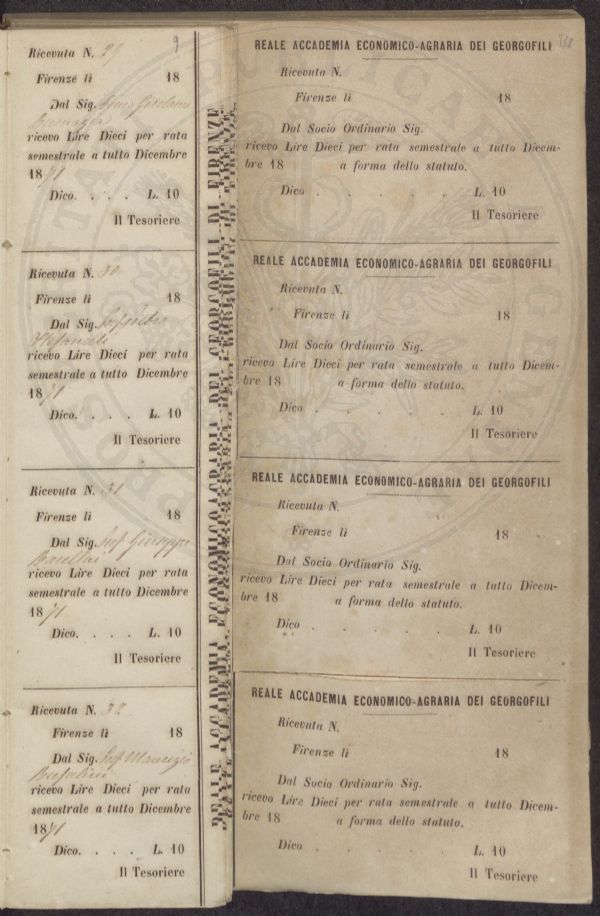 9
Ricevuta N. 29
Firenze lì 18
Dal Sig.
ricevo Lire Dieci per rata
semestrale a tutto Dicembre
1871
Dico. . . . L. 10
Il Tesoriere
Ricevuta N. 30
Firenze lì 18
Dal Sig.
Stefanelli
ricevo Lire Dieci per rata
semestrale a tutto Dicembre
1871
Dico. . . . L. 10
Il Tesoriere
Ricevuta N. 31
Firenze lì 18
Dal Sig. Giuseppe
ricevo Lire Dieci per rata
semestrale a tutto Dicembre
1871
Dico. . . . L. 10
Il Tesoriere
Ricevuta N. 32
Firenze lì 18
Dal Sig. Maurizio
Bufalini
ricevo Lire Dieci per rata
semestrale a tutto Dicembre
1871
Dico. . . . L. 10
Il Tesoriere
REALE ACCADEMIA ECONOMICO-AGRARIA DEI GEORGOFILI DI FIRENZE
REALE ACCADEMIA ECONOMICO-AGRARIA DEI GEORGOFILI
Ricevuta N.
Firenze lì 18
Dal Socio Ordinario Sig.
ricevo Lire Dieci per rata semestrale a tutto Dicem-
bre 18 a forma dello statuto.
Dico . . . . L. 10
Il Tesoriere
REALE ACCADEMIA ECONOMICO-AGRARIA DEI GEORGOFILI
Ricevuta N.
Firenze lì 18
Dal Socio Ordinario Sig.
ricevo Lire Dieci per rata semestrale a tutto Dicem-
bre 18 a forma dello statuto.
Dico . . . . L. 10
Il Tesoriere
REALE ACCADEMIA ECONOMICO-AGRARIA DEI GEORGOFILI
Ricevuta N.
Firenze lì 18
Dal Socio Ordinario Sig.
ricevo Lire Dieci per rata semestrale a tutto Dicem-
bre 18 a forma dello statuto.
Dico . . . . L. 10
Il Tesoriere
REALE ACCADEMIA ECONOMICO-AGRARIA DEI GEORGOFILI
Ricevuta N.
Firenze lì 18
Dal Socio Ordinario Sig.
ricevo Lire Dieci per rata semestrale a tutto Dicem-
bre 18 a forma dello statuto.
Dico . . . . L. 10
Il Tesoriere